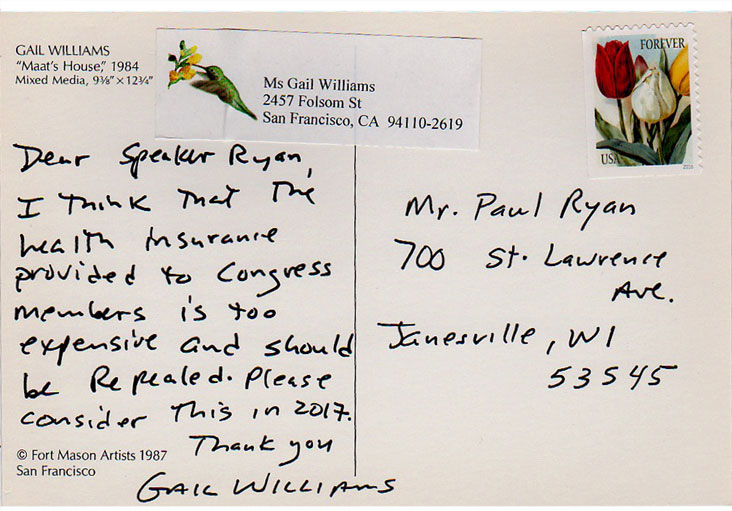 GAIL WILLIAMS
"Maat's House," 1984
Mixed Media, 9⅜" × 12¾"
Ms Gail Williams
2457 Folsom St
San Francisco, CA 94110-2619
FOREVER
USA
Dear Speaker Ryan,
I think that the
health insurance
provided to Congress
members is too
expensive and should
be Repealed. Please
consider this in 2017.
Thank you
GAIL WILLIAMS
Mr. Paul Ryan
700 St. Lawrence
Ave.
Janesville, WI
53545
© Fort Mason Artists 1987
San Francisco